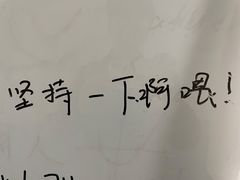 坚持一下啊喂！